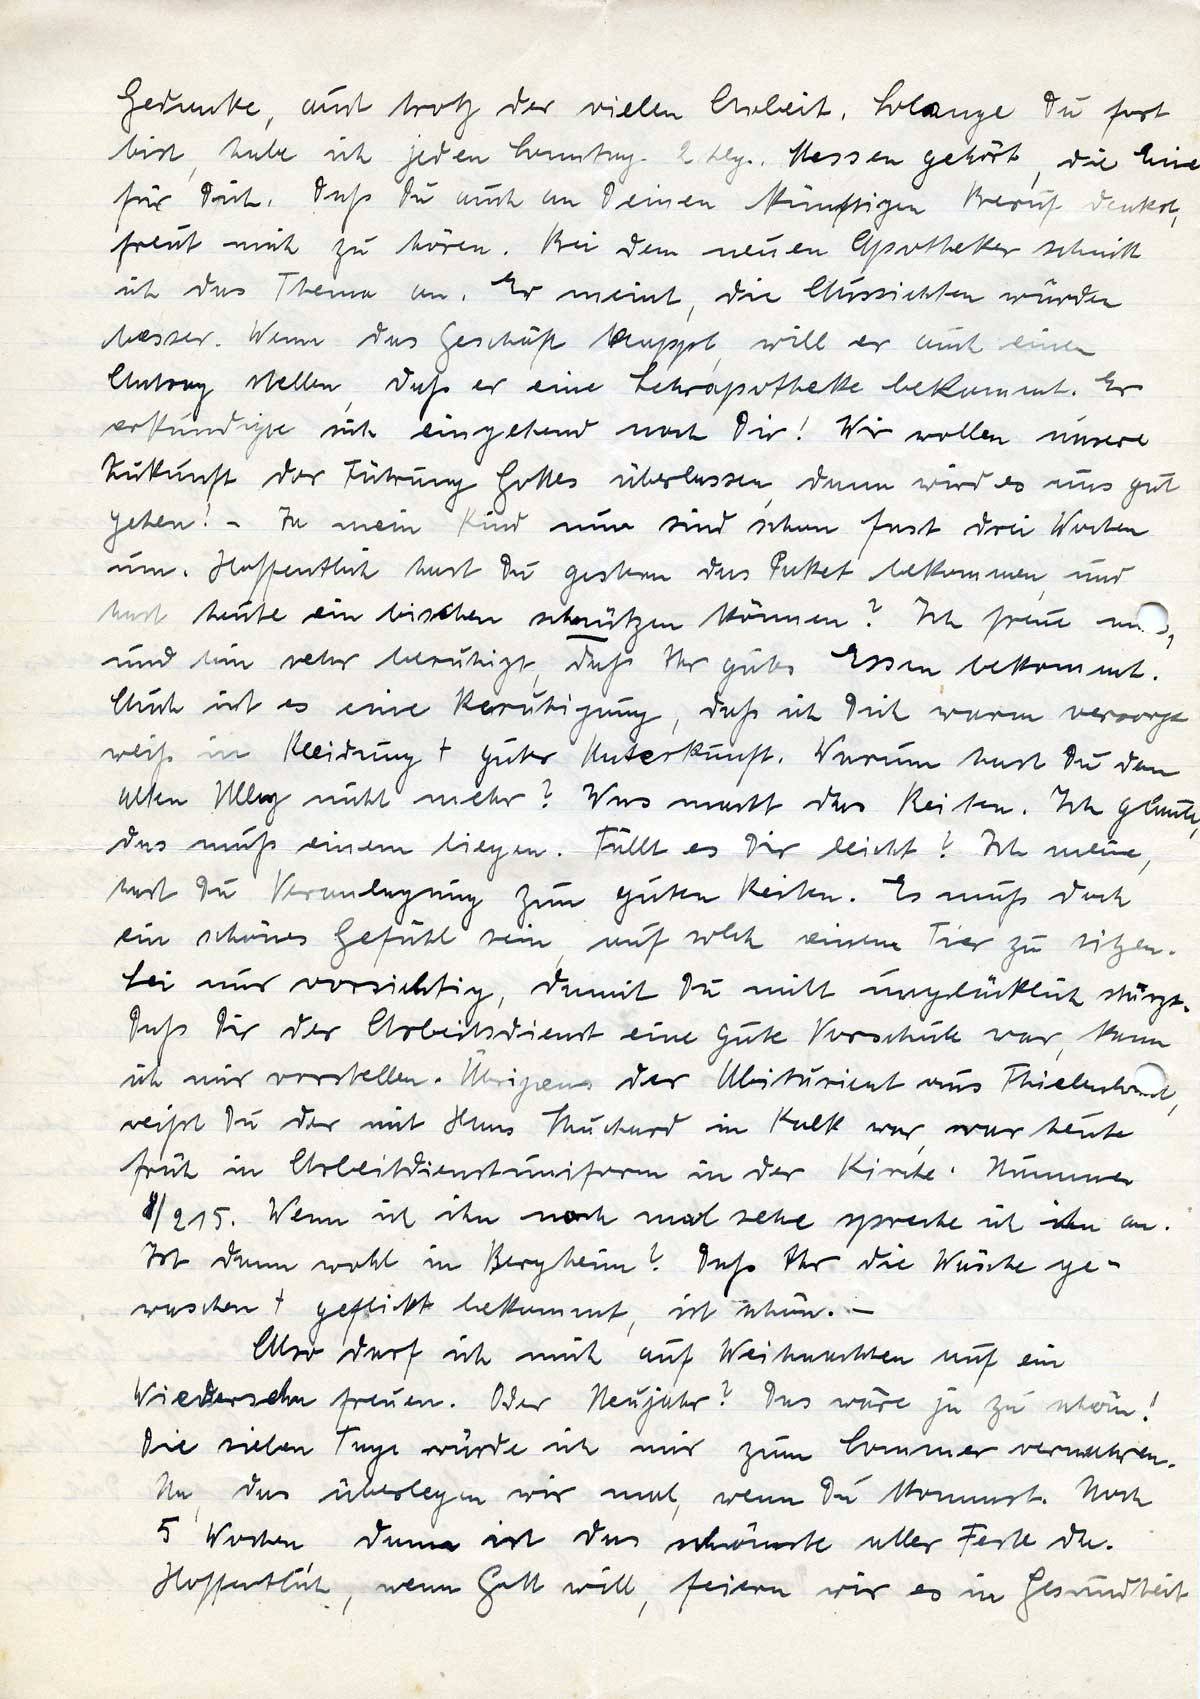 Gedanke, auch trotz der vielen Arbeit. Solange Du fort
bist, habe ich jeden Sonntag 2 hlg. Messen gehört, die Eine
für Dich. Daß Du auch an Deinen künftigen Beruf denkst,
freut mich zu hören. Bei dem neuen Apotheker schnitt
ich das Thema an. Er meint, die Aussichten würden
besser. Wenn das Geschäft klappt, will er auch einen
Antrag stellen, daß er eine Lehrapotheke bekommt. Er
erkundigte sich eingehend nach Dir! Wir wollen unsere
Zukunft der Führung Gottes überlassen, dann wird es uns gut
gehen! – Ja mein Kind nun sind schon fast drei Wochen
um. Hoffentlich hast Du gestern das Paket bekommen, und
hast heute ein bischen schnützen können? Ich freue
und bin sehr beruhigt, daß Ihr gutes Essen bekommt.
Auch ist es eine Beruhigung, daß ich Dich warm versorgt
weiß in Kleidung + guter Unterkunft. Warum hast Du den
alten nicht mehr? Was macht das Reiten. Ich glaube,
das muß einem liegen. Fällt es Dir leicht? Ich meine,
hast Du Veranlagung zum guten Reiten. Es muß doch
ein schönes Gefühl sein, auf solch einem Tier zu sitzen.
Sei nur vorsichtig, damit Du nicht unglücklich stürzt.
Daß Dir der Arbeitsdienst eine gute Vorschule war, kann
ich mir vorstellen. Übrigens der Abiturient aus
weißt Du der mit Hans in Kalk war, war heute
früh in Arbeitdienstuniform in der Kirche. Nummer
8/215. Wenn ich ihn noch mal sehe spreche ich ihn an.
Ist dann wohl in Bergheim? Daß Ihr die Wäsche ge-
waschen + geflickt bekommt, ist schön. –
Also darf ich mich auf Weihnachten auf ein
Wiedersehn freuen. Oder Neujahr? Das wäre ja zu schön!
Die sieben Tage würde ich mir zum Sommer verwahren.
Na, das überlegen wir mal, wenn Du kommst. Noch
5 Wochen, dann ist das schönste aller Feste da.
Hoffentlich, wenn Gott will, feiern wir es in Gesundheit